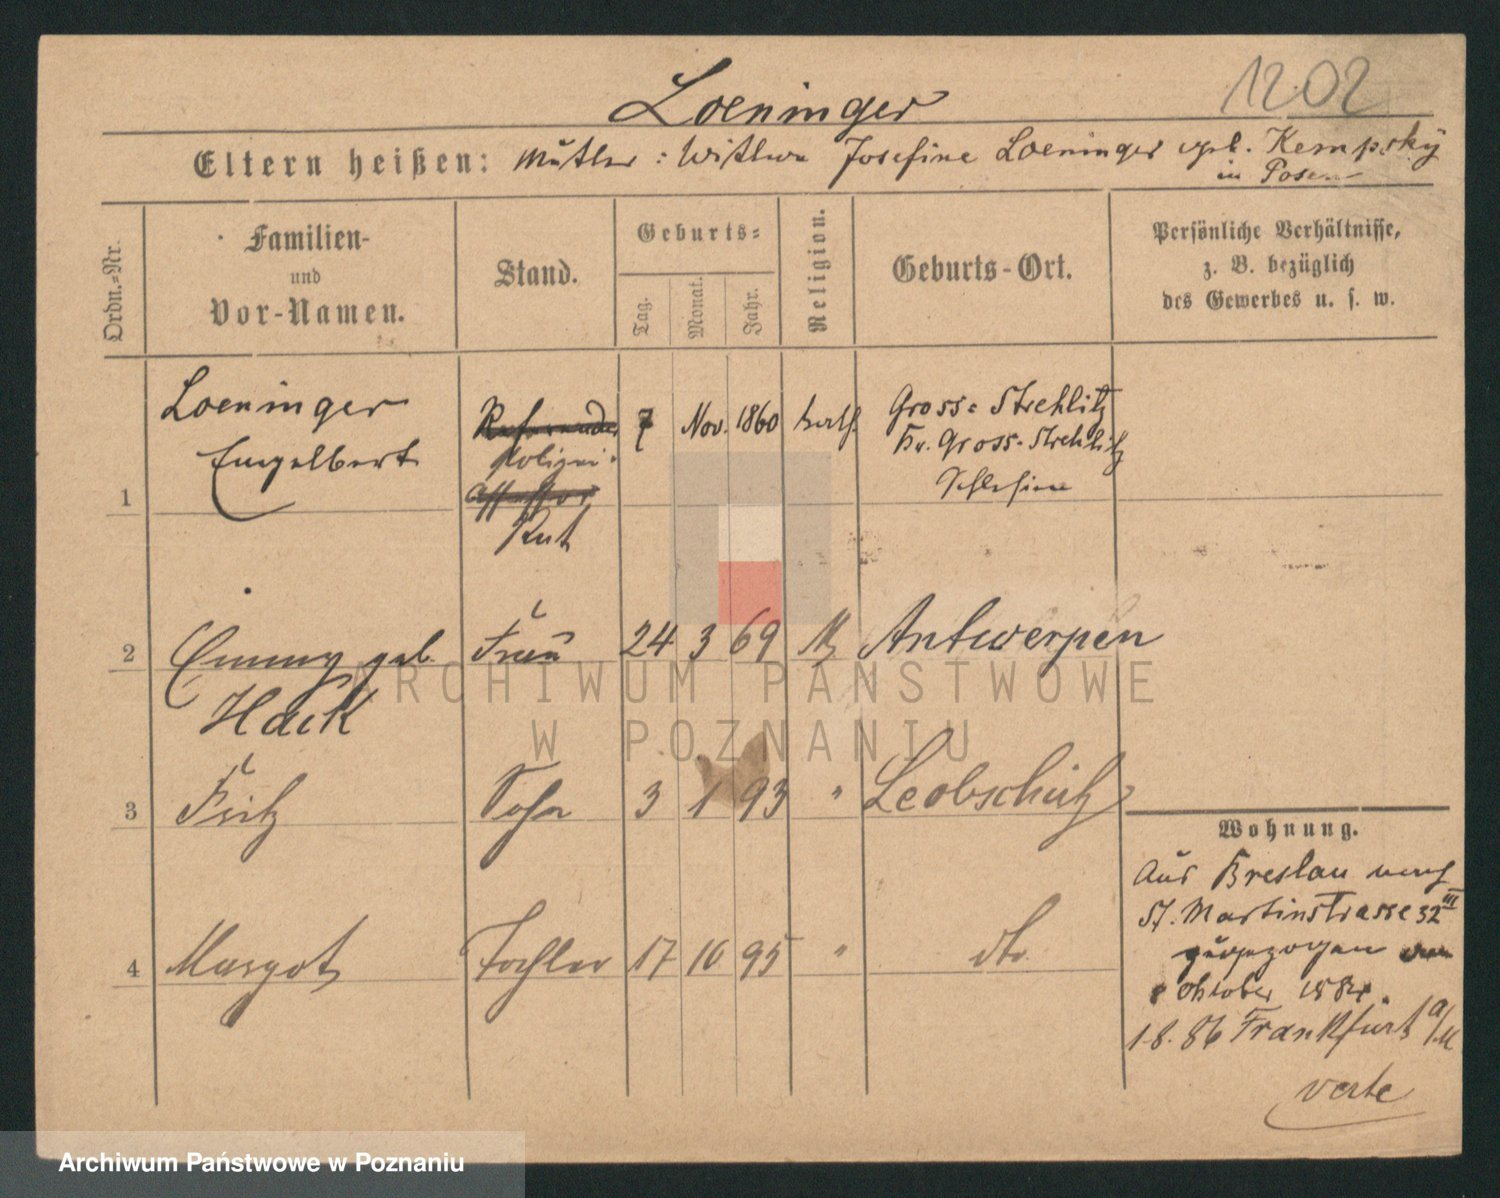 Loeninger
1202
Eltern heißen: Mutter: Wittwe Josefine Loeninger geb. Kempsky
in Posen
Ordn.=Nr.
Familien-
und
Vor-Namen.
Stand.
Geburts=
Tag.
Monat.
Jahr.
Religion.
Geburts-Ort.
Persönliche Verhältnisse,
z. B. bezüglich
des Gewerbes u. s. w.
1
Loeninger
Engelbert
Referendar
Polizei-
Assessor
Rat
7
Nov.
1860
kath.
Gross-Strehlitz
Kr. Gross-Strehlitz
Schlesien
2
Emmy geb.
Hack
Frau
24
3
69
Antwerpen
3
Fritz
Sohn
3
1
93
"
Leobschütz
4
Margot
Tochter
17
10
95
"
dto
Wohnung.
Aus Breslau nach
St. Martinstrasse 32 III
zugezogen
Oktober
1.8.86 Frankfurt a/M
verte
ARCHIWUM PAŃSTWOWE
W POZNANIU
Archiwum Państwowe w Poznaniu